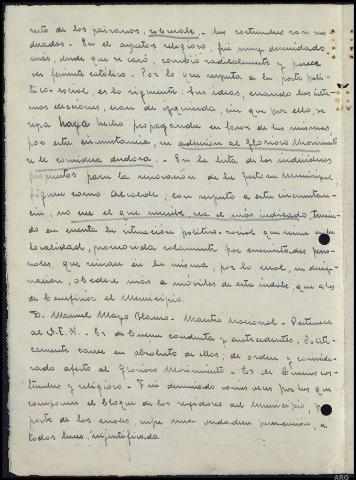 nuto de los paisanos, es noble. - Sus costumbres son mo
deradas - En el aspecto religioso, fué muy descuidado,
mas, desde que se casó, cambió radicalmente y parece
ser ferviente católico. Por lo que respecta a la parte polí-
tico-social, es lo siguiente: Sus ideas, cuando las últi-
mas elecciones, eran de izquierda, sin que por ello, se
sepa haya hecho propaganda en favor de las mismas,
por esta circunstancia, su adhesion al Glorioso Movimiento
se le considera dudosa. - En la lista de los individuos
propuestos para la renovación de la Gestora Municipal
figura como Alcalde, con respecto a esta circunstan-
cia, no cree el que suscribe sea el más indicado, tenien-
do en cuenta la situación político-social que reina en la
localidad, promovida solamente por enemistades perso-
nales, que reinan en la misma, por lo cual, su desig-
nación, obedece más a móviles de esta índole, que a los
de beneficiar el Municipio.
D. Manuel Mayo - Maestro Nacional - Pertenece
al S.E.M. - Es de buena conducta y antecedentes. Políti-
camente carece en absoluto de ellos; de orden y conside-
rado afecto al Glorioso Movimiento. - Es de buenas cos-
tumbres y religioso - Fué denunciado varias veces por los que
componen el bloque de los regidores del Municipio, por
parte de los cuales, sufre una verdadera persecucion, a
todas luces, injustificada.
ARG